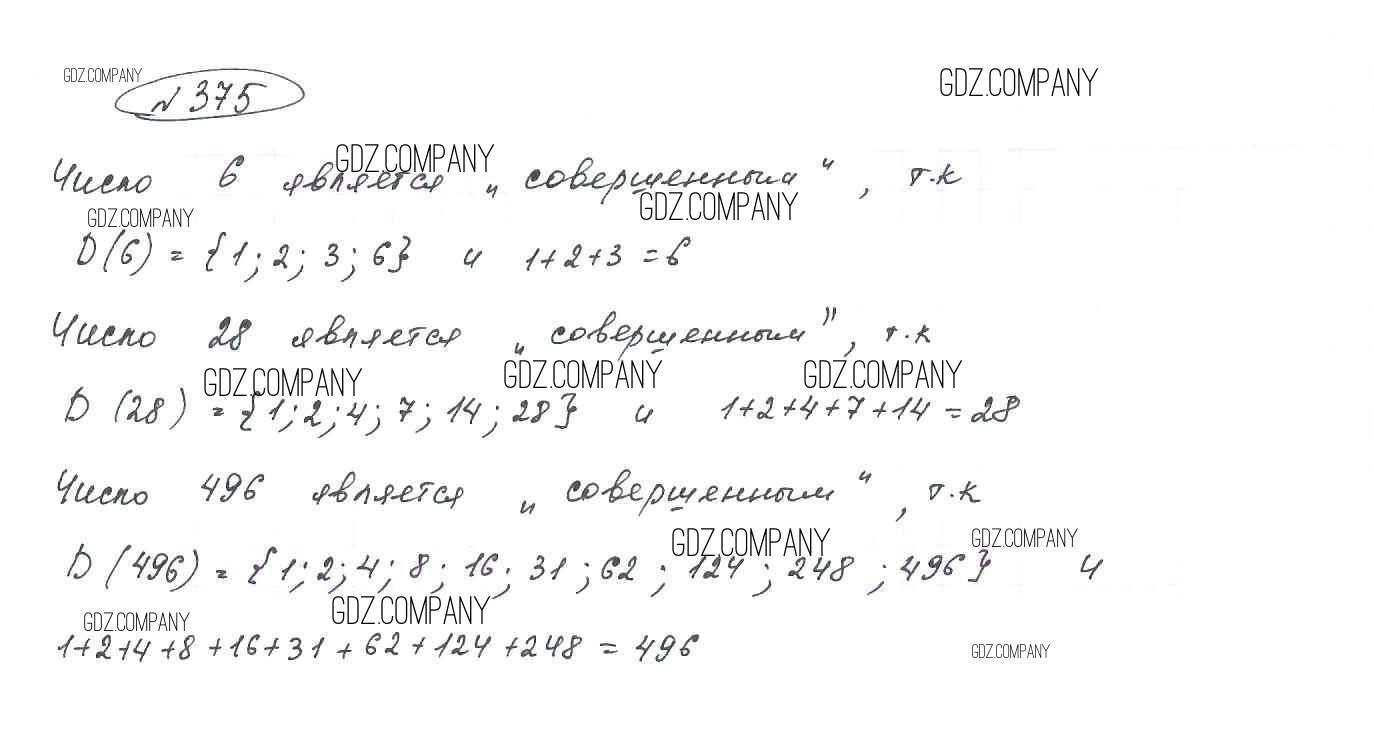 GDZ.COMPANY
GDZ.COMPANY
№ 375
GDZ.COMPANY
Число 6 является „совершенным“, т.к
GDZ.COMPANY
GDZ.COMPANY
D(6) = {1; 2; 3; 6} и 1+2+3 = 6
Число 28 является „совершенным”, т.к
GDZ.COMPANY
GDZ.COMPANY
GDZ.COMPANY
D (28) = {1; 2; 4; 7; 14; 28} и 1+2+4+7+14 = 28
Число 496 является „совершенным“, т.к
GDZ.COMPANY
GDZ.COMPANY
D (496) = {1; 2; 4; 8; 16; 31; 62; 124; 248; 496} и
GDZ.COMPANY
GDZ.COMPANY
1+2+4+8+16+31+62+124+248 = 496
GDZ.COMPANY